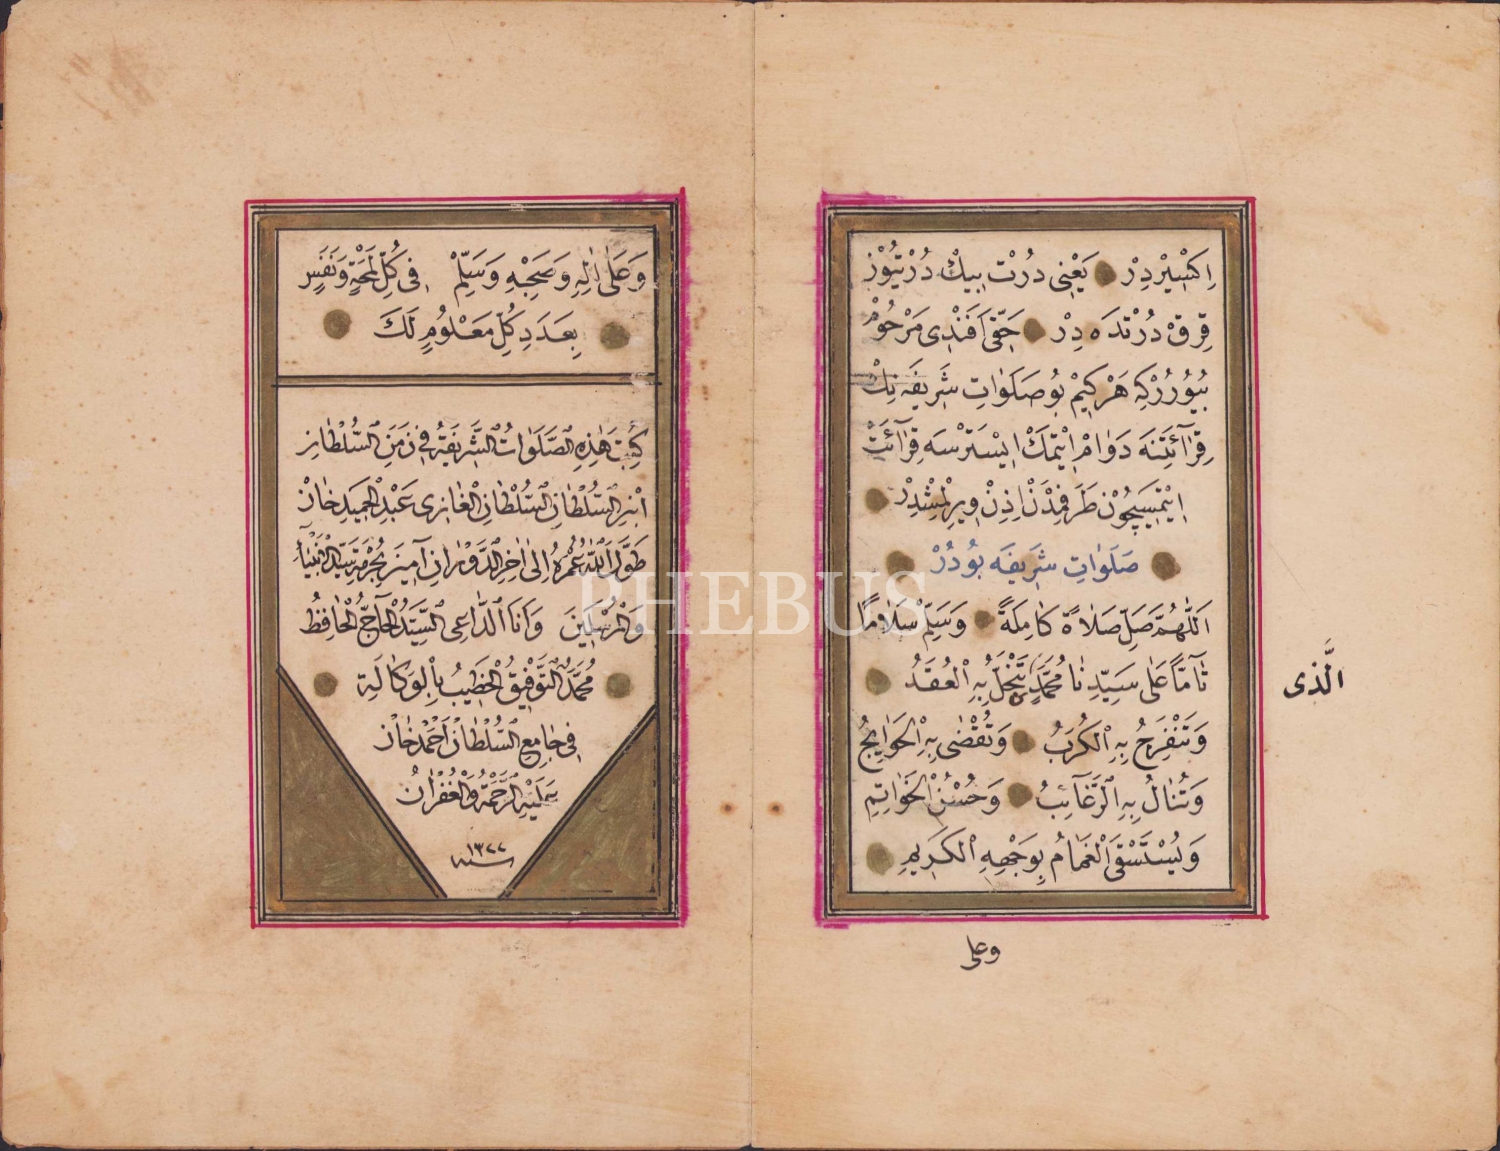 اِكْسِيرْدِرْ يَعْنِى دُرْت بِيكْ دُرْتيُوْز
قِرقْ دُرْتدَه دِرْ حَقِّى اَفَنْدِى مَرْحُومْ
بُيُورُرْكِه هَرْ كِيمْ بُو صَلَوٰاتِ شَرِيفَه نِكْ
قِرٰآئَتِنَه دَوٰامْ اِيْتمَكْ اِيسْتَرْسَه قِرٰآئَتْ
اِيْتمِسِيچُونْ طَرَفِمْدَنْ اِذِنْ وِيرِلْمِشْدِرْ
صَلَوٰاتِ شَرِيفَه بُودُرْ
اَللّٰهُمَّ صَلِّ صَلاَةً كَامِلَةً وَسَلِّمْ سَلاَمًا
تَآمًّا عَلٰى سَيِّدِنَا مُحَمَّدٍ تَنْحَلُّ بِهِ الْعُقَدُ
الَّذى
وَتَنْفَرِجُ بِهِ الْكُرَبُ وَتُقْضٰى بِهِ الْحَوٰايِجُ
وَتُنَالُ بِهِ الرَّغَآئِبُ وَحُسْنُ الْخَوٰاتِمِ
وَيُسْتَسْقَى الْغَمَامُ بِوَجْهِهِ الْكَرِيمِ
وعلى
وَعَلٰى اٰلِهِ وَصَحْبِهِ وَسَلِّمْ فِى كُلِّ لَمْحَةٍ وَنَفَسٍ
بِعَدَدِ كُلِّ مَعْلُومٍ لَكَ
كُتِبَتْ هٰذِهِ الصَّلَوٰاتُ الشَّرِيفَةُ فِى زَمَنِ السُّلْطَانِ
ابْنِ السُّلْطَانِ السُّلْطَانِ الْغَازِى عَبْدِ الْحَمِيدِ خَانْ
طَوَّلَ اللّٰهُ عُمْرَهُ اِلٰى اٰخِرِ الدَّوْرَانِ آمِينَ بِحُرْمَةِ سَيِّدِ الْاَنْبِيَاءِ
وَالْمُرْسَلِينَ وَاَنَا الدَّاعِى السَّيِّدُ الْحَآجُّ الْحَافِظُ
مُحَمَّدُ التَّوْفِيقُ الْخَطِيبُ بِالْوَكَالَةِ
فِى جَامِعِ السُّلْطَانْ اَحْمَدْ خَانْ
عَلَيْهِ الرَّحْمَةُ وَالْغُفْرَانُ
سنه ١٣٢٢
PHEBUS